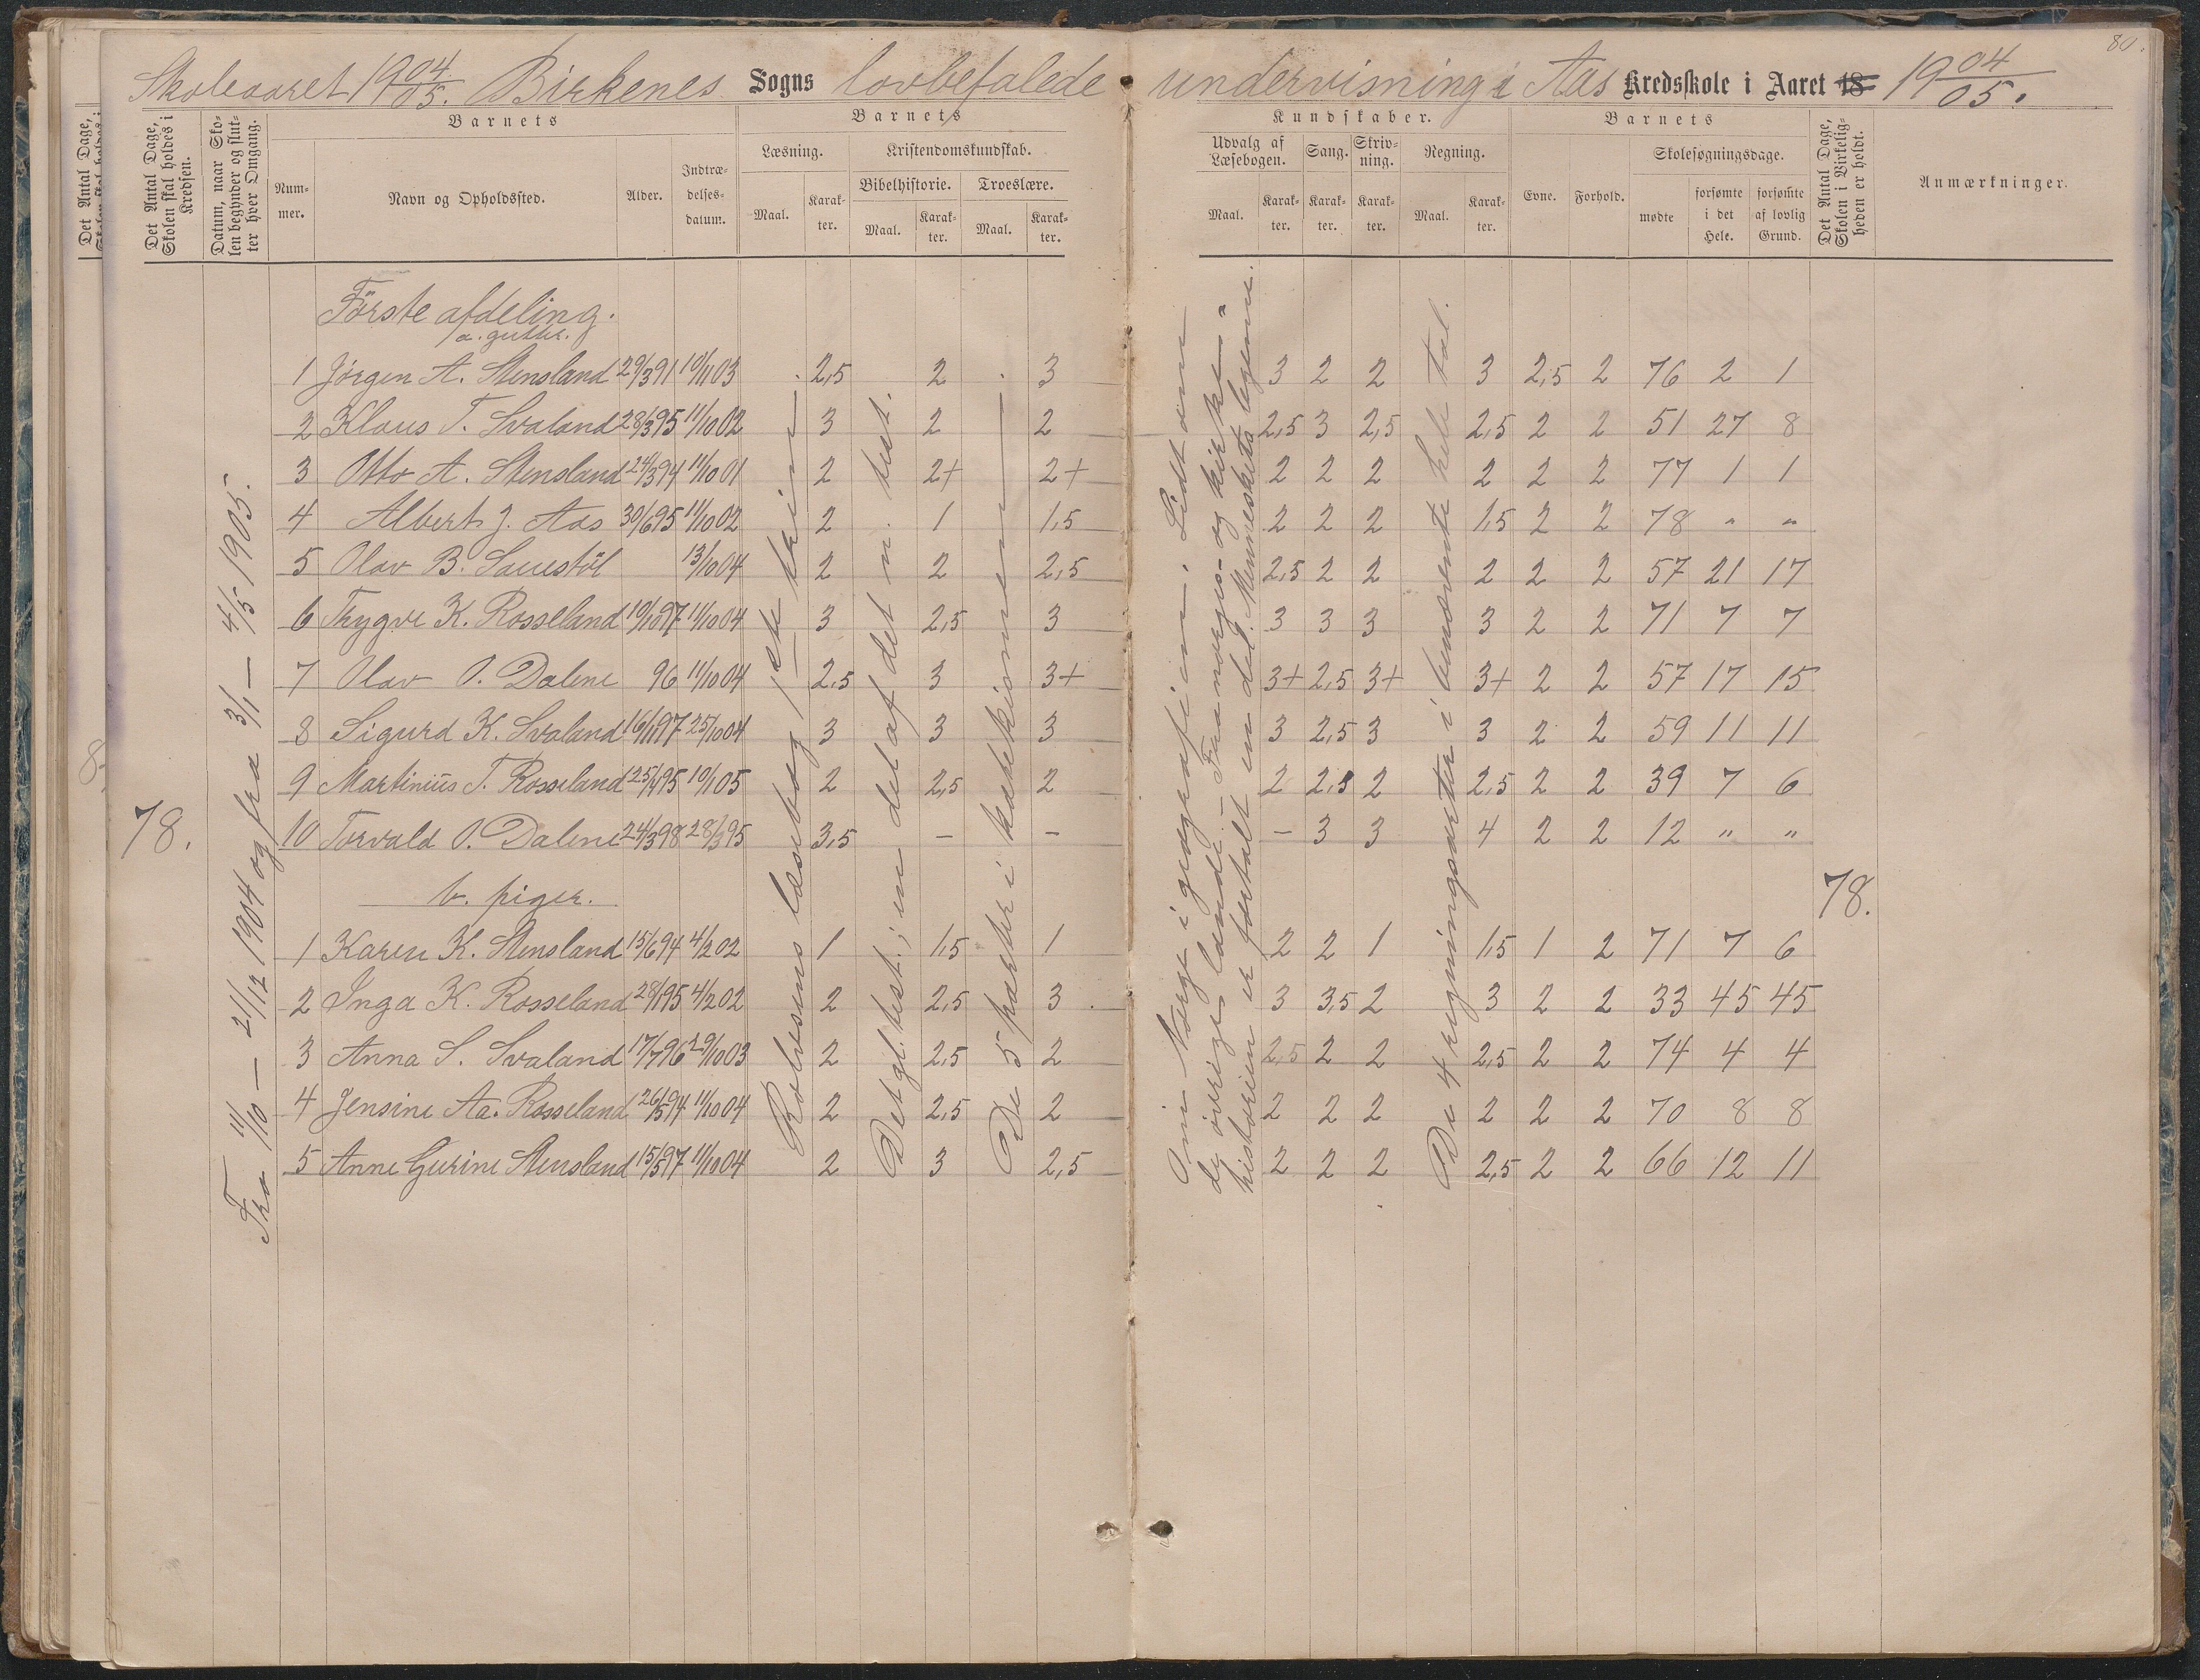 80.
Skoleaaret 1904/05. Birkenes Sogns lovbefalede undervisning i Aas Kredsskole i Aaret 18 1904/05.
Det Antal Dage,
Det Antal Dage, Skolen skal holdes i Kredsen.
Datum, naar Skolen begynder og slutter hver Omgang.
Barnets
Nummer.
Navn og Opholdssted.
Alder.
Indtrædelsesdatum.
Barnets
Læsning.
Maal.
Karakter.
Kristendomskundskab.
Bibelhistorie.
Maal.
Karakter.
Troeslære.
Maal.
Karakter.
Kundskaber.
Udvalg af Læsebogen.
Maal.
Karakter.
Sang.
Karakter.
Skrivning.
Karakter.
Regning.
Maal.
Karakter.
Barnets
Evne.
Forhold.
Skolesøgningsdage.
mødte
forsømte i det Hele.
forsømte af lovlig Grund.
Det Antal Dage, Skolen i Virkeligheden er holdt.
Anmærkninger.
78.
Fra 11/10 — 21/12 1904 og fra 3/1 — 4/5 1905.
Første afdeling.
a. gutter.
1 Jørgen A. Stensland 29/3 91 10/11 03 2,5 2 3 3 2 2 3 2,5 2 76 2 1
2 Klaus T. Svaland 28/3 95 11/10 02 3 2 2 2,5 3 2,5 2,5 2 2 51 27 8
3 Otto A. Stensland 24/3 94 11/10 01 2 2+ 2+ 2 2 2 2 2 2 77 1 1
4 Albert J. Aas 30/6 95 11/10 02 2 1 1,5 2 2 2 1,5 2 2 78 " "
5 Olav B. Sauestöl 13/10 04 2 2 2,5 2,5 2 2 2 2 2 57 21 17
6 Trygve K. Rosseland 10/10 97 11/10 04 3 2,5 3 3 3 3 3 2 2 71 7 7
7 Olav O. Dalene 96 11/10 04 2,5 3 3+ 3+ 2,5 3+ 3+ 2 2 57 17 15
8 Sigurd K. Svaland 16/1 97 25/10 04 3 3 3 3 2,5 3 3 2 2 59 11 11
9 Martinius T. Rosseland 25/1 95 10/1 05 2 2,5 2 2 2,5 2 2,5 2 2 39 7 6
10 Torvald O. Dalene 24/3 98 28/3 95 3,5 — — — 3 3 4 2 2 12 " "
b. piger.
78.
1 Karen K. Stensland 15/6 94 4/2 02 1 1,5 1 2 2 1 1,5 1 2 71 7 6
2 Inga K. Rosseland 28/1 95 4/2 02 2 2,5 3 3 3,5 2 3 2 2 33 45 45
3 Anna S. Svaland 17/7 96 29/10 03 2 2,5 2 2,5 2 2 2,5 2 2 74 4 4
4 Jensine Aa. Rosseland 26/5 94 11/10 04 2 2,5 2 2 2 2 2 2 2 70 8 8
5 Anne Gurine Stensland 15/5 97 11/10 04 2 3 2,5 2 2 2 2,5 2 2 66 12 11
Rolvsens læsebog 1ste trin
Det gl. test.; en del af det n. test.
De 5 parter i katekismen
Om Norge i geografien. Lidt om
de övrige lande. – Fra norges- og kirke-
historien er fortalt en del. Menneskets legeme.
De 4 regningsarter i benævnte hele tal.